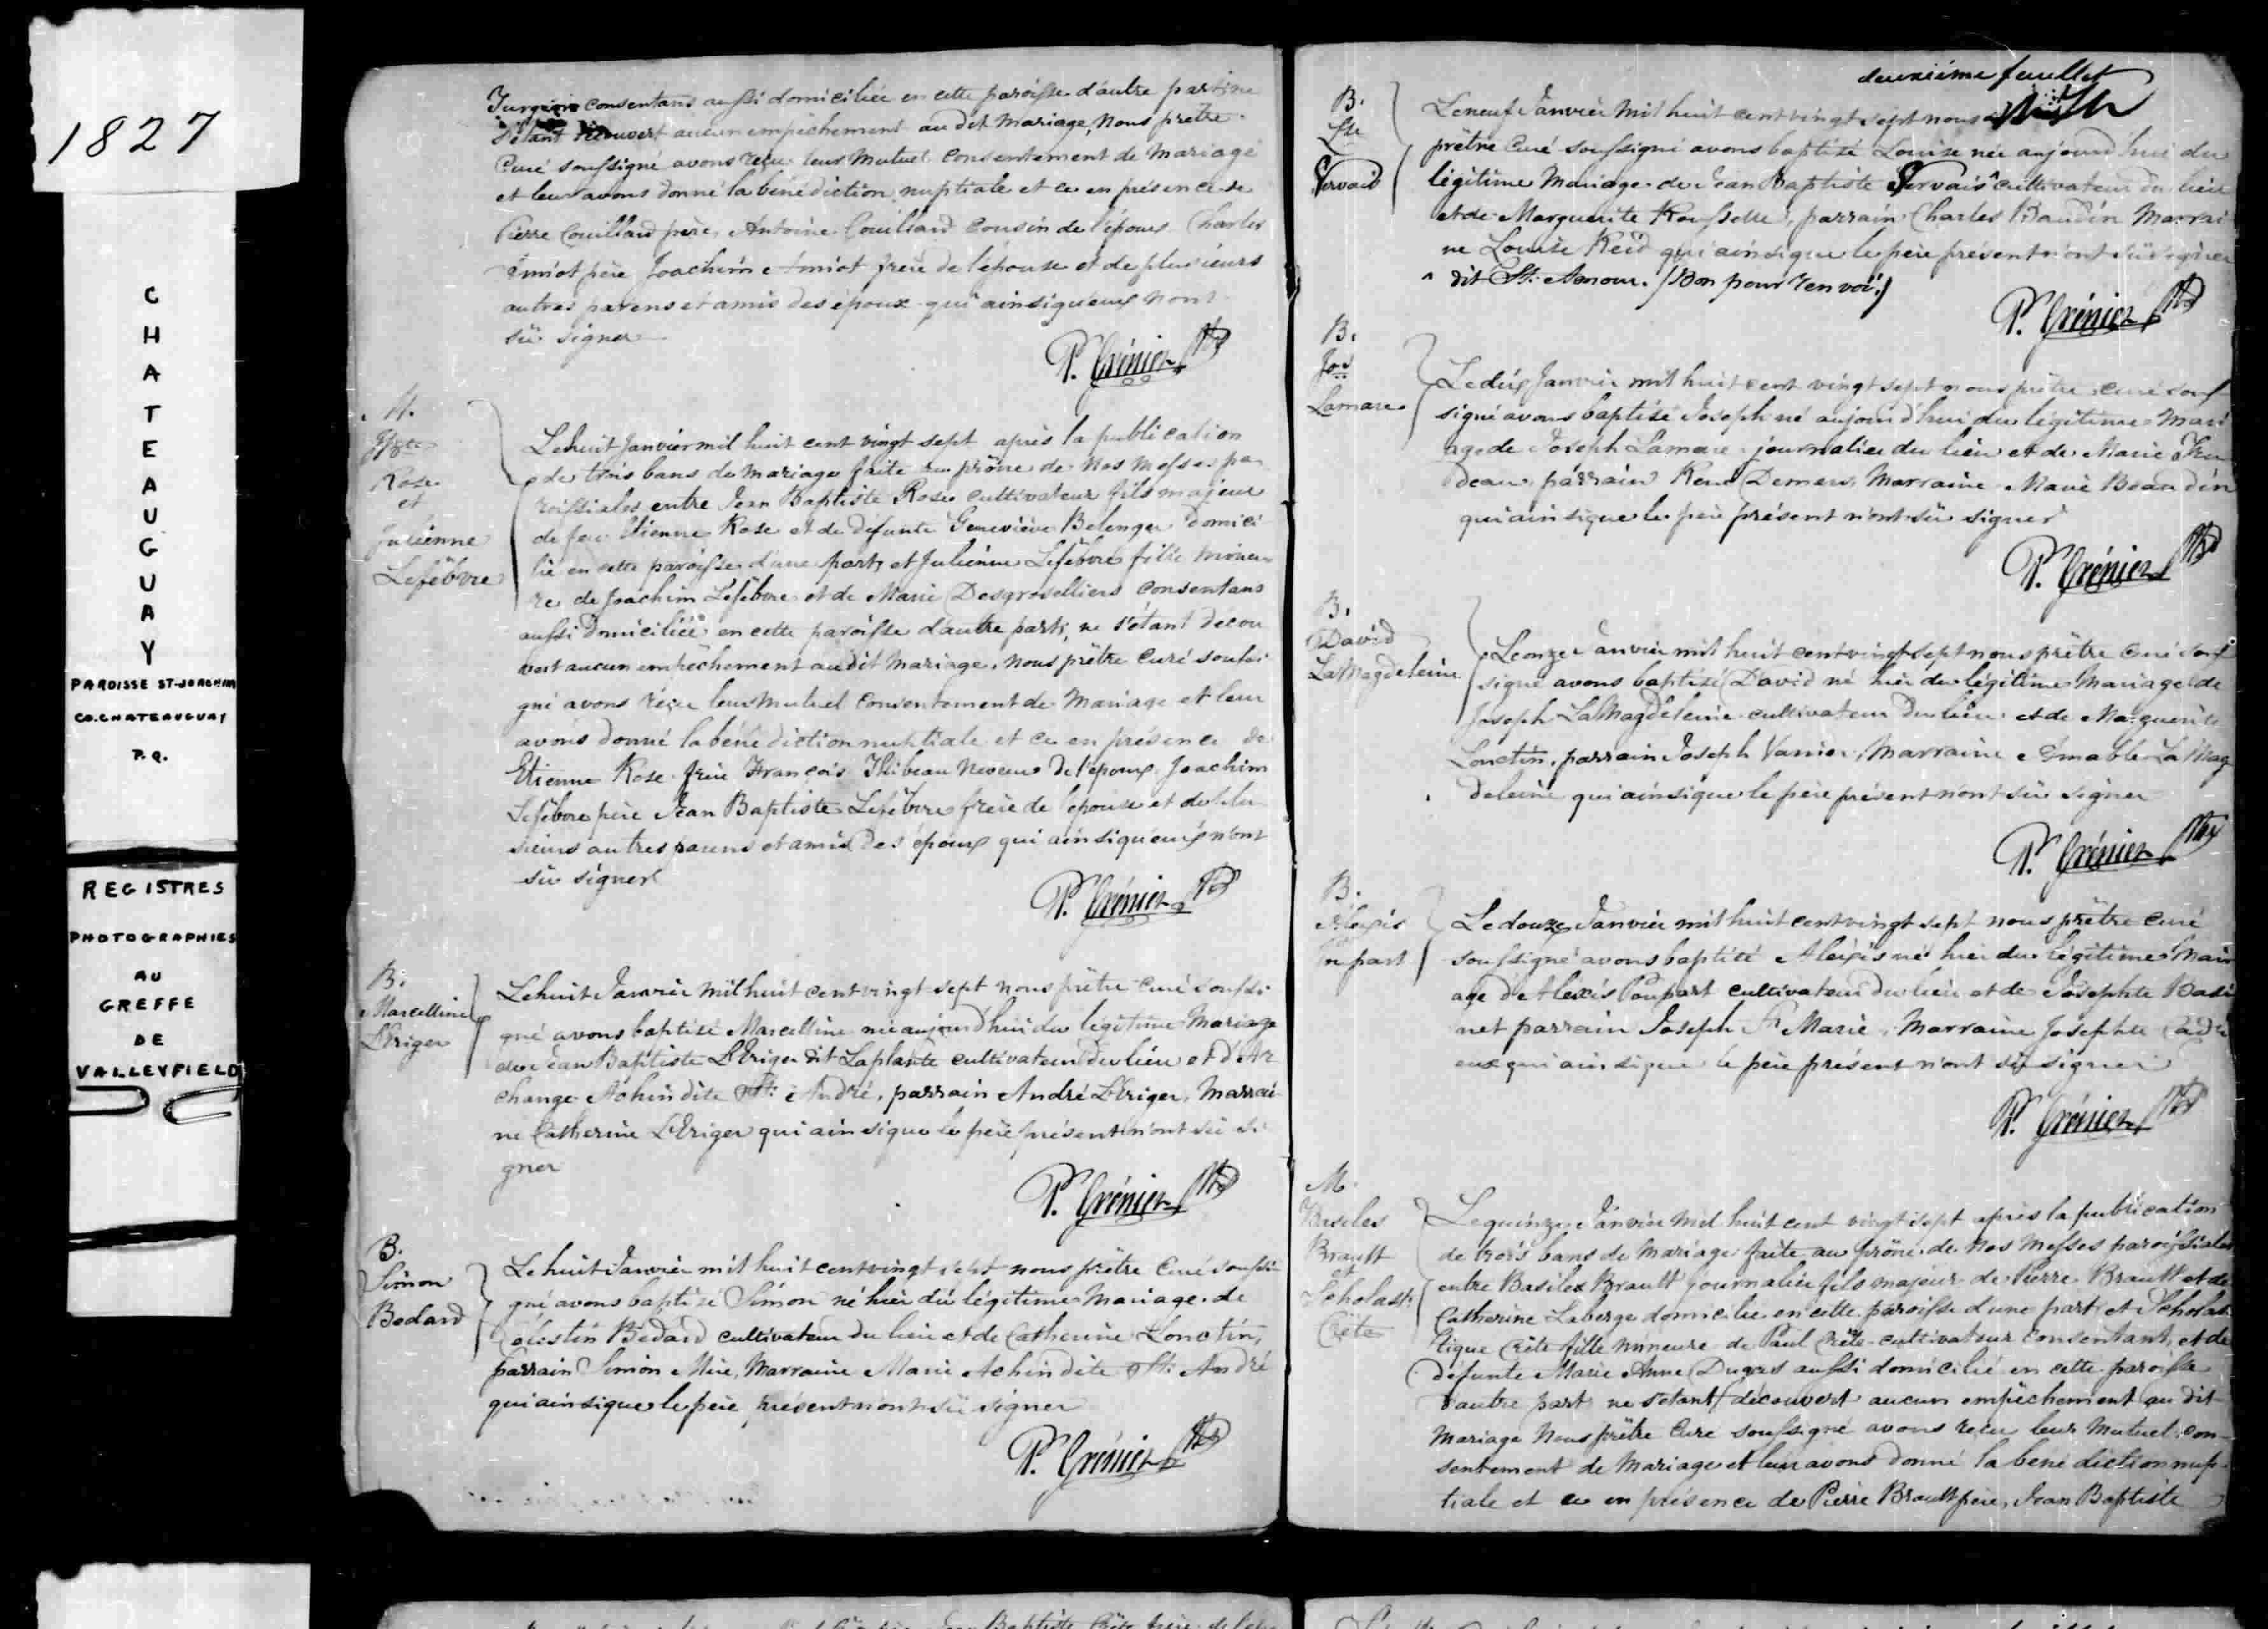 1827
CHATEAUGUAY
PAROISSE ST-JOACHIM
CO. CHATEAUGUAY
P.Q.
REGISTRES
PHOTOGRAPHIES
AU
GREFFE
DE
VALLEYFIELD
consentans aussi domiciliée en cette paroisse d'autre part ne
s'étant découvert aucun empêchement au dit Mariage, Nous prêtre
Curé soussigné avons reçu leur Mutuel Consentement de Mariage
et leur avons donné la bénédiction nuptiale et ce en présence de
Pierre Couillard père, Antoine Couillard Cousin de l'époux Charles
Amiot père Joachim Amiot frère de l'épouse et de plusieurs
autres parens et amis des époux qui ainsi qu'eux n'ont
sû signer
P. Grénier Ptre
M.
J Bte
Rose
et
Julienne
Lefebvre
Le huit Janvier mil huit cent vingt sept après la publication
de trois bans de mariage faite au prône de nos Messes pa
roissiales entre Jean Baptiste Rose cultivateur fils majeur
de feu Etienne Rose et de defunte Geneviève Belenger domici
lié en cette paroisse d'une part, et Julienne Lefebvre fille mineu
re de Joachim Lefebvre et de Marie Desgroselliers consentans
aussi domiciliée en cette paroisse d'autre part, ne s'étant décou
vert aucun empêchement au dit Mariage. Nous prêtre Curé soussi
gné avons reçu leur Mutuel Consentement de Mariage et leur
avons donné la bénédiction nuptiale et ce en présence de
Etienne Rose frère François Thibeau Neveu de l'époux Joachim
Lefebvre père Jean Baptiste Lefebvre frère de l'épouse et de plu
sieurs autres parens et amis des époux qui ainsi qu'eux n'ont
sû signer
P. Grénier Ptre
B.
Marcelline
L'Eriger
Le huit Janvier mil huit cent vingt sept nous prêtre Curé soussi
gné avons baptisé Marcelline née aujourd'hui du légitime Mariage
de Jean Baptiste L'Eriger dit Laplante cultivateur du lieu et d'Ar
change Achin dite St. André, parrain André L'Eriger, Marrai
ne Catherine L'Eriger qui ainsi que le père présent n'ont sû si
gner
P. Grénier Ptre
B.
Simon
Bedard
Le huit Janvier mil huit cent vingt sept nous prêtre Curé soussi
gné avons baptisé Simon né hier du légitime Mariage de
Célestin Bédard cultivateur du lieu et de Catherine Lonctin,
parrain Simon Mire, Marraine Marie Achin dite St. André
qui ainsi que le père présent n'ont sû signer
P. Grénier Ptre
deuxième feuillet
B.
Lse
Servais
Le neuf Janvier mil huit cent vingt sept nous
prêtre Curé soussigné avons baptisé Louise née aujourd'hui du
légitime Mariage de Jean Baptiste Servais ^ cultivateur du lieu
et de Marguerite Rousselle, parrain Charles Baudin Marrai
ne Louise Reid qui ainsi que le père présent n'ont sû signer
^ dit St. Amour. /Bon pour renvoi/
P. Grénier Ptre
B.
Jos
Lamare
Le dix Janvier mil huit cent vingt sept nous prêtre curé sous
signé avons baptisé Joseph né aujourd'hui du légitime Mari
age de Joseph Lamare journalier du lieu et de Marie
deau parrain René Demers, Marraine Marie Beaudin
qui ainsi que le père présent n'ont sû signer
P. Grénier Ptre
B.
David
LaMagdeleine
Le onze Janvier mil huit cent vingt sept nous prêtre Curé sous
signé avons baptisé David né hier du légitime Mariage de
Joseph LaMagdeleine cultivateur du lieu et de Marguerite
Lonctin, parrain Joseph Vanier, Marraine Amable LaMag
deleine qui ainsi que le père présent n'ont sû signer
P. Grénier Ptre
B.
Alexis
Le douze Janvier mil huit cent vingt sept nous prêtre curé
soussigné avons baptisé Alexis né hier du légitime Mari
age d'Alexis Poupart cultivateur du lieu et de Josephte Badi
net parrain Joseph St Marie, Marraine Josephte
eux qui ainsi que le père présent n'ont sû signer
P. Grénier Ptre
M.
Basiles
Brault
et
Scholast
Crête
Le quinze Janvier mil huit cent vingt sept après la publication
de trois bans de Mariage faite au prône de nos Messes paroissiales
entre Basiles Brault journalier fils majeur de Pierre Brault et de
Catherine Laberge domicilié en cette paroisse d'une part et Scholas
tique Crête fille mineure de Paul Crête cultivateur consentant, et de
défunte Marie Anne Dugres aussi domicilié en cette paroisse
d'autre part, ne s'étant découvert aucun empêchement au dit
Mariage Nous prêtre Curé soussigné avons reçu leur Mutuel con-
sentement de Mariage et leur avons donné la bénédiction nup-
tiale et ce en présence de Pierre Brault père, Jean Baptiste